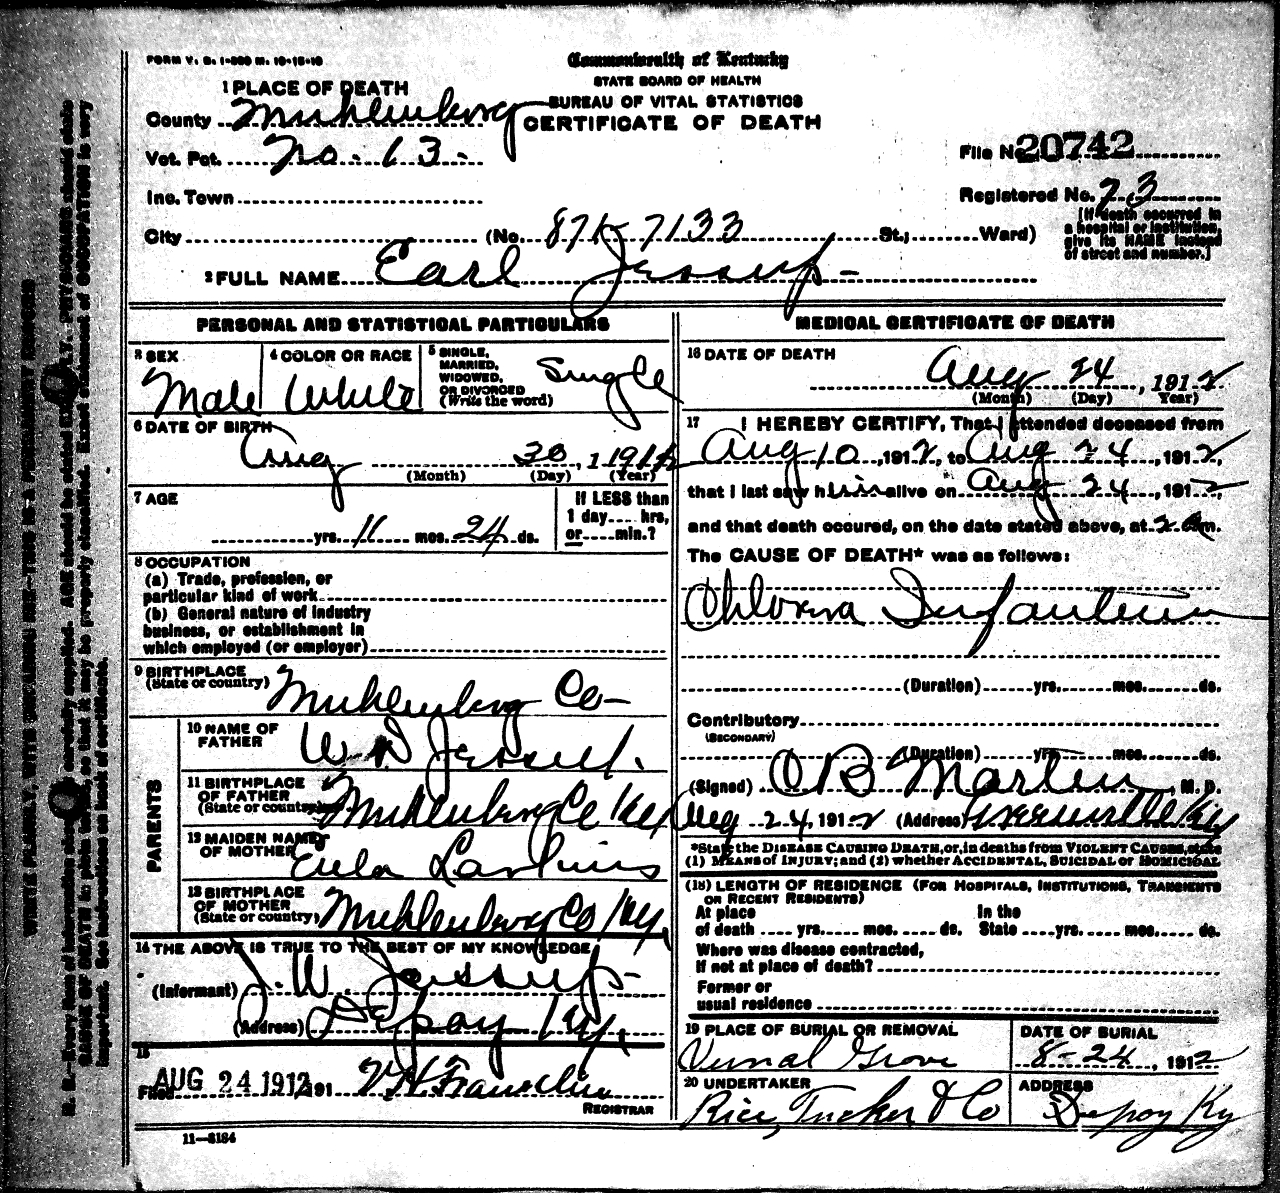 FORM V. S. 1-
Commonwealth of Kentucky
STATE BOARD OF HEALTH
BUREAU OF VITAL STATISTICS
CERTIFICATE OF DEATH
1 PLACE OF DEATH
County Muhlenburg
Vot. Pct. No. 13.
Inc. Town
City (No. St.; Ward)
File No. 20742
Registered No. 73
[If death occurred in
a hospital or institution,
give its NAME instead
of street and number.]
2 FULL NAME Earl Jessup
PERSONAL AND STATISTICAL PARTICULARS
3 SEX
Male
4 COLOR OR RACE
White
5 SINGLE,
MARRIED,
WIDOWED,
OR DIVORCED
(Write the word)
Single
6 DATE OF BIRTH
Aug 30, 1911
(Month) (Day) (Year)
7 AGE
yrs. 11 mos. 24 ds.
If LESS than
1 day.... hrs.
or.....min.?
8 OCCUPATION
(a) Trade, profession, or
particular kind of work
(b) General nature of industry
business, or establishment in
which employed (or employer)
9 BIRTHPLACE
(State or country)
Muhlenburg Co
PARENTS
10 NAME OF
FATHER
Jessup.
11 BIRTHPLACE
OF FATHER
(State or country)
Muhlenburg Co Ky
12 MAIDEN NAME
OF MOTHER
Eula Larkins
13 BIRTHPLACE
OF MOTHER
(State or country)
Muhlenburg Co Ky.
14 THE ABOVE IS TRUE TO THE BEST OF MY KNOWLEDGE
(Informant) J. W. Jessup
(Address) Depoy Ky.
15
Filed AUG 24 1912 191
V H Franklin
REGISTRAR
11—3184
MEDICAL CERTIFICATE OF DEATH
16 DATE OF DEATH
Aug 24, 1912
(Month) (Day) Year)
17 I HEREBY CERTIFY, That I attended deceased from
Aug 10, 1912, to Aug 24, 1912,
that I last saw him alive on Aug 24, 1912,
and that death occured, on the date stated above, at 2 am.
The CAUSE OF DEATH* was as follows:
Infantum
(Duration) yrs. mos. ds.
Contributory
(SECONDARY)
(Duration) yrs. mos. ds.
(Signed) M. D.
Aug 24, 1912 (Address) Greenville Ky
*State the DISEASE CAUSING DEATH, or, in deaths from VIOLENT CAUSES, state
(1) MEANS OF INJURY; and (2) whether ACCIDENTAL, SUICIDAL or HOMICIDAL
(18) LENGTH OF RESIDENCE (FOR HOSPITALS, INSTITUTIONS, TRANSIENTS
OR RECENT RESIDENTS)
At place In the
of death yrs. mos. ds. State yrs. mos. ds.
Where was disease contracted,
if not at place of death?
Former or
usual residence
19 PLACE OF BURIAL OR REMOVAL
Vernal Grove
DATE OF BURIAL
8-24, 1912
20 UNDERTAKER
Rice, Tucker & Co
ADDRESS
Depoy Ky